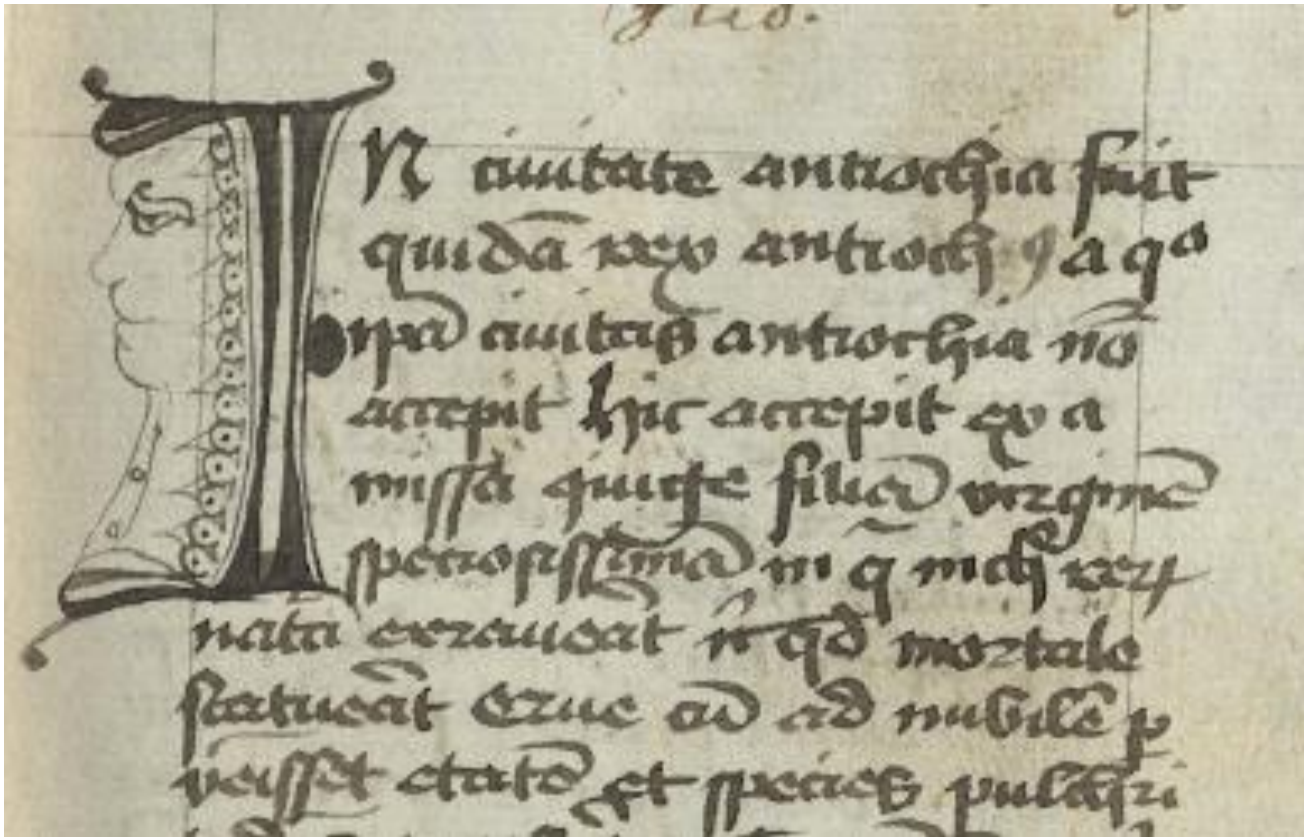 IN ciuitate antiochia fuit
quidā rex antiochꝰ a qͦ
ipā ciuitas antiochia nō
accepit hic accepit ex a
missa
filiā virginē
speciosissimā in q̄ nichil rerꝝ
natā
nͥ qd̄ mortale
statueāt
cū ad nubilē p
veisset etatē et species pulchri